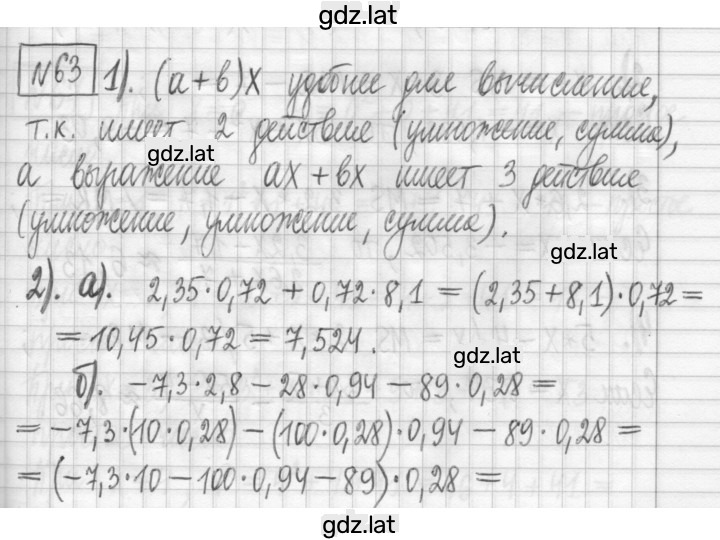 gdz.lat
№63 1). (a+b)x удобнее для вычисления,
т.к. имеет 2 действие (умножение, сумма),
gdz.lat
а выражение ax+bx имеет 3 действие
(умножение, умножение, сумма).
gdz.lat
2). а). 2,35·0,72 + 0,72·8,1 = (2,35+8,1)·0,72 =
= 10,45·0,72 = 7,524.
gdz.lat
б). −7,3·2,8 − 28·0,94 − 89·0,28 =
= −7,3·(10·0,28) − (100·0,28)·0,94 − 89·0,28 =
= (−7,3·10 − 100·0,94 − 89)·0,28 =
gdz.lat